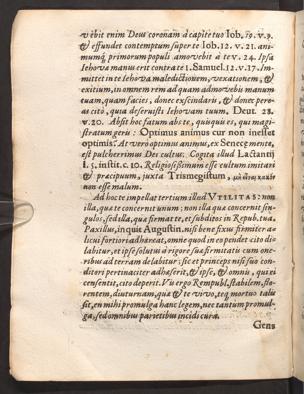 vebit enim Deus coronam à capite tuo Iob. 19. v. 9.
& effundet contemptum super te Iob. 12. v. 21. ani-
mumq́ primorum populi amovebit à te v. 24. Ipsa
Iehovæ manus erit contra te 1. Samuel. 12. v. 17. Im-
mittet in te Iehova maledictionem, vexationem, &
exitium, in omnem rem ad quam admovebis manum
tuam, quam facies, donec exscindaris, & donec pere-
as citò, quia deseruisti Iehovam tuum. Deut. 28.
v. 20. Absit hoc fatum abs te, quisquis es, qui magi-
stratum geris: Optimus animus cur non inesset
optimis? At verò optimus animus, ex Senecæ mente,
est pulcherrimus Dei cultus: Cogita illud Lactantij
l. 5. instit. c. 10. Religiosissimum esse cultum imitari:
& præcipuum, juxta Trismegistum,
non esse malum.
Ad hoc te impellat tertium illud VTILITAS: non
illa, quæ te concernit unum: non illa quæ concernit sin-
gulos, sed illa, quæ firmat te, et subditos in Repub. tua.
Paxillus, inquit Augustin. nisi bene fixus firmiter a-
licui fortiori adhæreat, omne quod in eo pendet citò di-
labitur, et ipse solutus à rigore suæ firmitatis cum one-
ribus ad terram delabitur: sic et princeps nisi suo con-
ditori pertinaciter adhæserit, & ipse, & omnis, qui ei
consentit, cito deperit. Vis ergo Rempubl. stabilem, flo-
rentem, diuturnam, quæ & te vivo, teq́ mortuo talis
sit, en mihi promulga hanc legem, nec tantum promul-
ga, sed omnibus parietibus incidi cura.
Gens